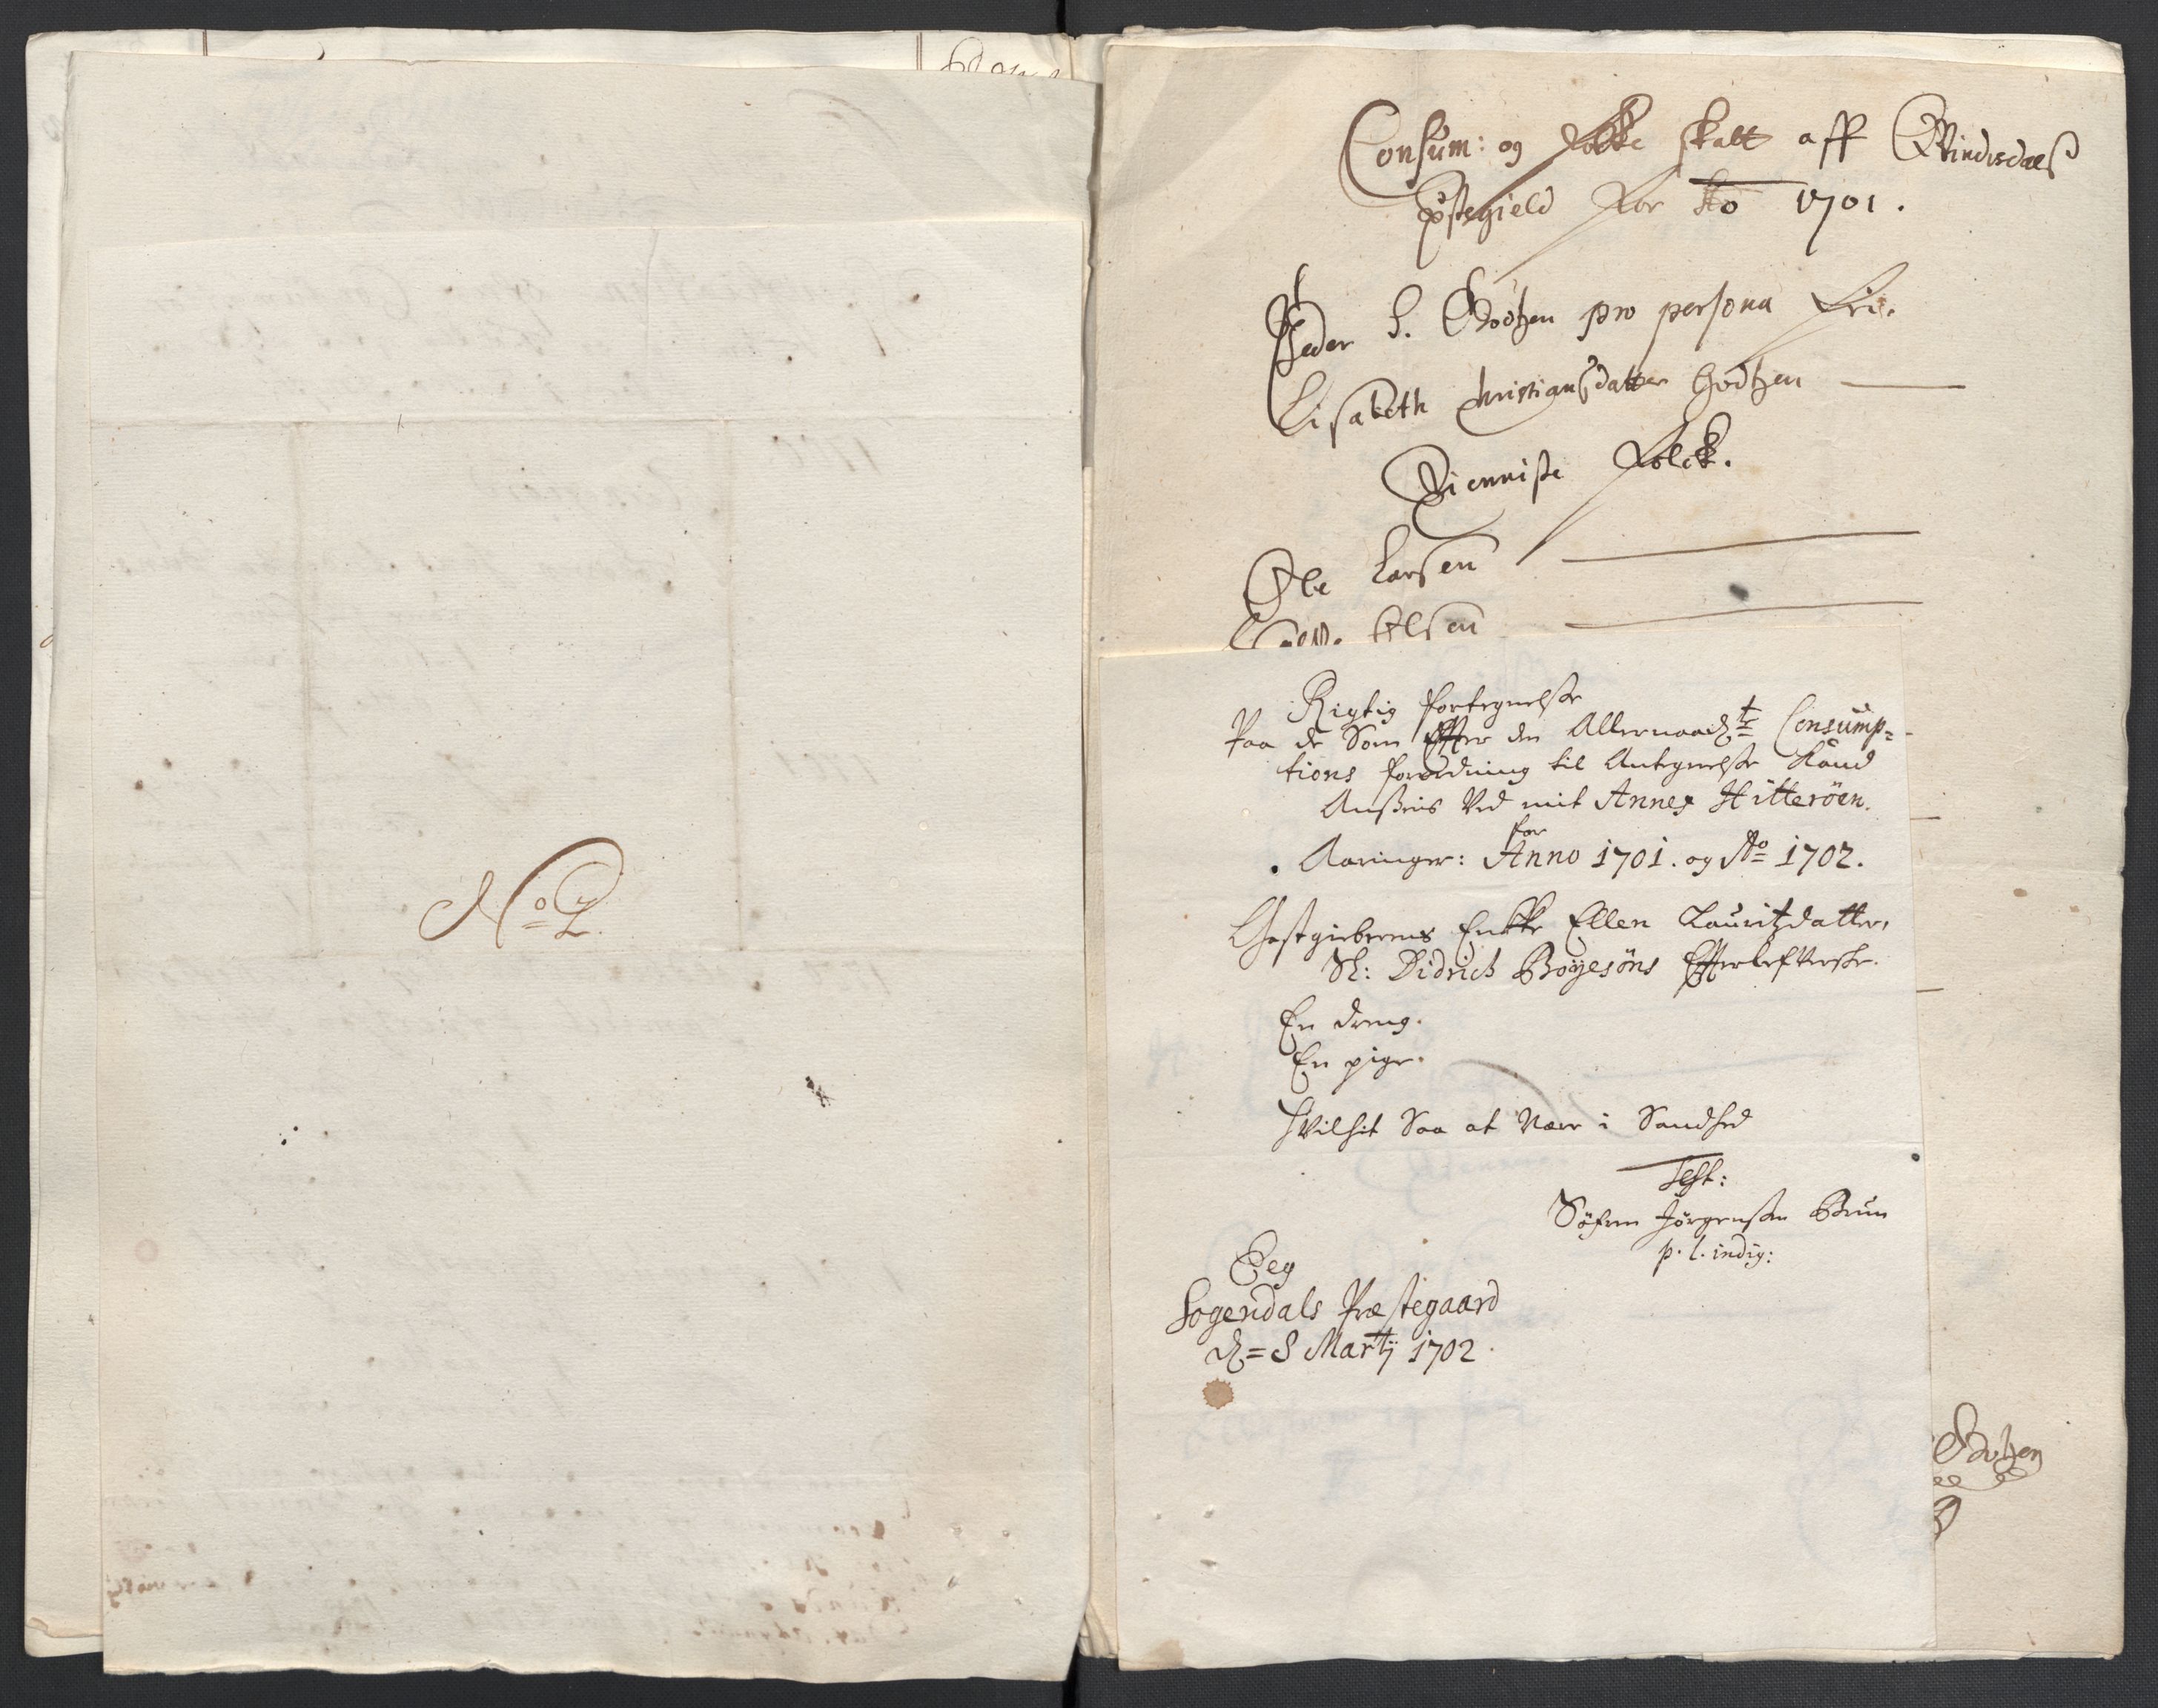 No 2.
Consum: og folke skatt aff Qvindisdals
Pstegield for Ao 1701.
Peder S. Godtzen pro persona fri.
Lisabeth Christiansdatter Godtzen
Tienniste folck.
Ole Larsen
Olsen
Rigtig fortegnelse
Paa de Som Efter den Allernaadste Consump=
tions forordning til Antegnelse kand
Ansees Ved mit Annex Hitteröen.
for
Aaringer: Anno 1701. og Ao 1702.
Gastgieberens Enkke Ellen Lauritzdatter,
Sl: Didrich Boyesöns Efterlefverske.
En dreng.
En pige.
Hvilket Saa at Være i Sandhed
Test:
Söfren Jörgensen Brun
p. l. indig:
Eeg
Sogendals Præstegaard
d= 8 Martij 1702.
Godtzen